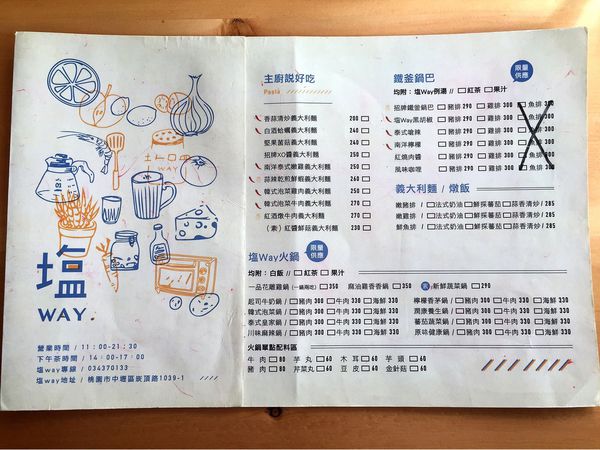 土占口皿
WAY
塩
WAY.
營業時間 / 11:00-21:30
下午茶時間 / 14:00-17:00
塩way專線 / 034370133
塩way地址 / 桃園市中壢區炭頂路1039-1
主廚説好吃
Pasta
蒜味清炒義大利麵 200
白酒蛤蠣義大利麵 240
堅果菌菇義大利麵 240
招牌XO醬義大利麵 240
南洋泰式嫩雞義大利麵 250
蒜辣乾煎鮮蝦義大利麵 260
韓式泡菜雞肉義大利麵 260
韓式泡菜牛肉義大利麵 260
紅酒燉牛肉義大利麵 270
(素)紅醬鮮菇義大利麵 230
鐵釜鍋巴
限量供應
均附:塩Way例湯 // 紅茶 果汁
招牌鐵釜鍋巴 豬排 290 雞排 300 魚排
塩Way黑胡椒 豬排 290 雞排 300 魚排
泰式嗆辣 豬排 290 雞排 300 魚排
南洋檸檬 豬排 290 雞排 300 魚排
紅燒肉醬 豬排 290 雞排 300 魚排
風味咖哩 豬排 290 雞排 300 魚排
義大利麵 / 燉飯
嫩豬排 / 法式奶油 鮮採蕃茄 蒜香清炒 / 285
嫩雞排 / 法式奶油 鮮採蕃茄 蒜香清炒 / 285
鮮魚排 / 法式奶油 鮮採蕃茄 蒜香清炒 / 285
塩Way火鍋
限量供應
均附:白飯 // 紅茶 果汁
一品花雕雞鍋 350 麻油雞香香鍋 350 素 新鮮蔬菜鍋 290
起司牛奶鍋 / 豬肉 300 牛肉 330 海鮮 330 檸檬香茅鍋 / 豬肉 300 牛肉 330 海鮮 330
韓式泡菜鍋 / 豬肉 300 牛肉 330 海鮮 330 潤康養生鍋 / 豬肉 300 牛肉 330 海鮮 330
泰式皇家鍋 / 豬肉 300 牛肉 330 海鮮 330 蕃茄蔬菜鍋 / 豬肉 300 牛肉 330 海鮮 330
川味麻辣鍋 / 豬肉 300 牛肉 330 海鮮 330 原味健康鍋 / 豬肉 300 牛肉 330 海鮮 330
火鍋單點配料區
牛肉 80 芋丸 60 木耳 60 芋頭 60
豬肉 80 芹菜丸 60 豆皮 60 金針菇 60